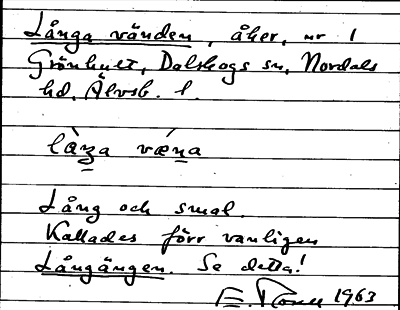 Långa vänden, åker, nr 1
Grönhult, Dalskogs sn, Nordals
hd, Älvsb. l.
Lång och smal.
Kallades förr vanligen
Långängen. Se detta!
1963